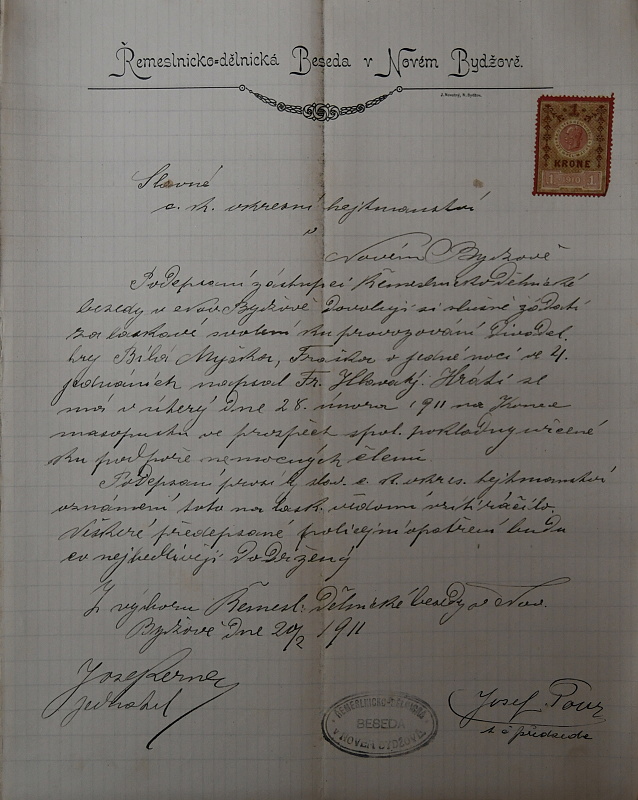 Řemeslnicko-dělnická Beseda v Novém Bydžově.
KRONE
1 1910 1
Slavné
c. k. okresní hejtmanství
v
Novém Bydžově
Podepsaní zástupci Řemeslnicko Dělnické
besedy v Nov. Bydžově Dovolují si slušně žádati
za laskavé svolení ku provozování Divadel.
hry Bílá Myška, Fraška v jedné noci ve 4.
jednáních napsal Fr. Hlavatý. Hráti se
má v úterý Dne 28. února 1911 na Konec
masopustu ve prospěch spol. pokladny určené
ku podpoře nemocných členů
Podepsaní prosí by slav. c. k. okres. hejtmanství
oznámení toto na lask. vědomí vzíti ráčilo.
Veškeré předepsané policejní opatření budu
co nejbedlivěji Dodrženy
Z výboru Řemesl. Dělnické besedy v Nov.
Bydžově Dne 20/2 1911
Josef
jednatel
Josef
t. č. předseda
ŘEMESLNICKO-DĚLNICKÁ
BESEDA
V NOVÉM BYDŽOVĚ